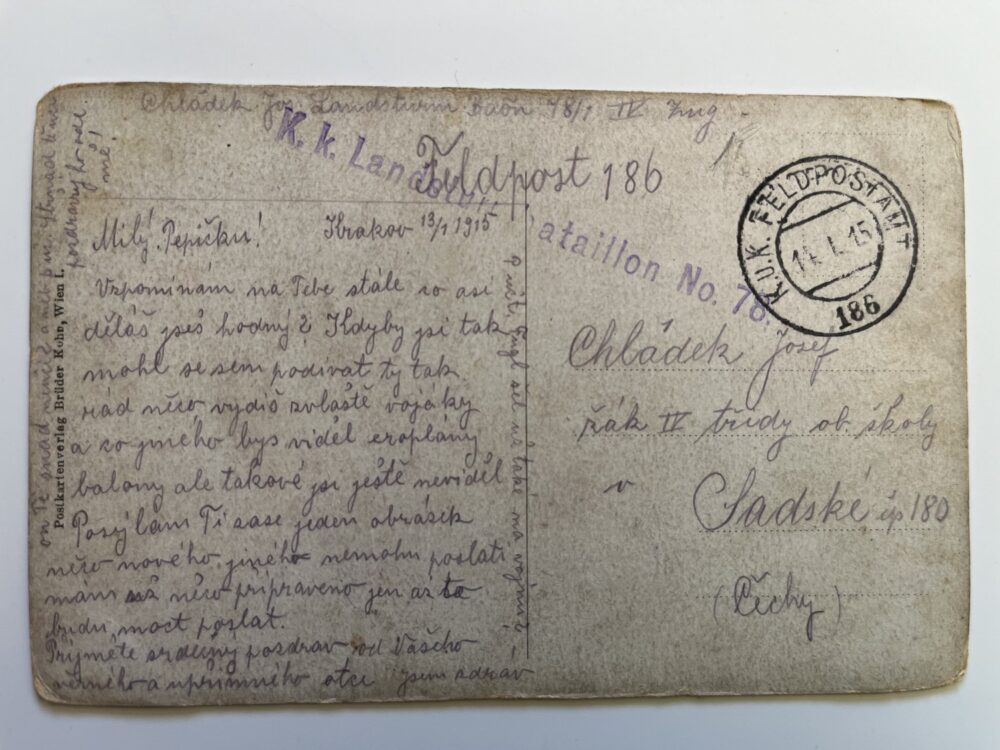 Chládek Jos. Landsturm Baon 78/1 IV Zug
Feldpost 186
K. k. Landstur Bataillon No. 78.
K.U.K. FELDPOSTAMT
14. I. 15
186
Milý Pepíčku! Krakov 13/1 1915
Vzpomínám na Tebe stále co asi
děláš jseš hodný? Kdyby jsi tak
mohl se sem podívat ty tak
rád něco vydíš zvláště vojáky
a co jiného bys viděl eroplány
balony ale takové jsi ještě neviděl
Posýlám Ti zase jeden obrásek
něco nového jiného nemohu poslati
mám už něco připraveno jen až to
budu moct poslat.
Přijměte srdečný pozdrav od Vašeho
věrného a upřímného otce jsem zdráv
na vojnu
on Tě snad
pozdravuj ho ode
mě!
Postkartenverlag Brüder Kohn, Wien I.
Chládek Josef
žák IV třídy ob. školy
v
Sadské čp 180
(Čechy)